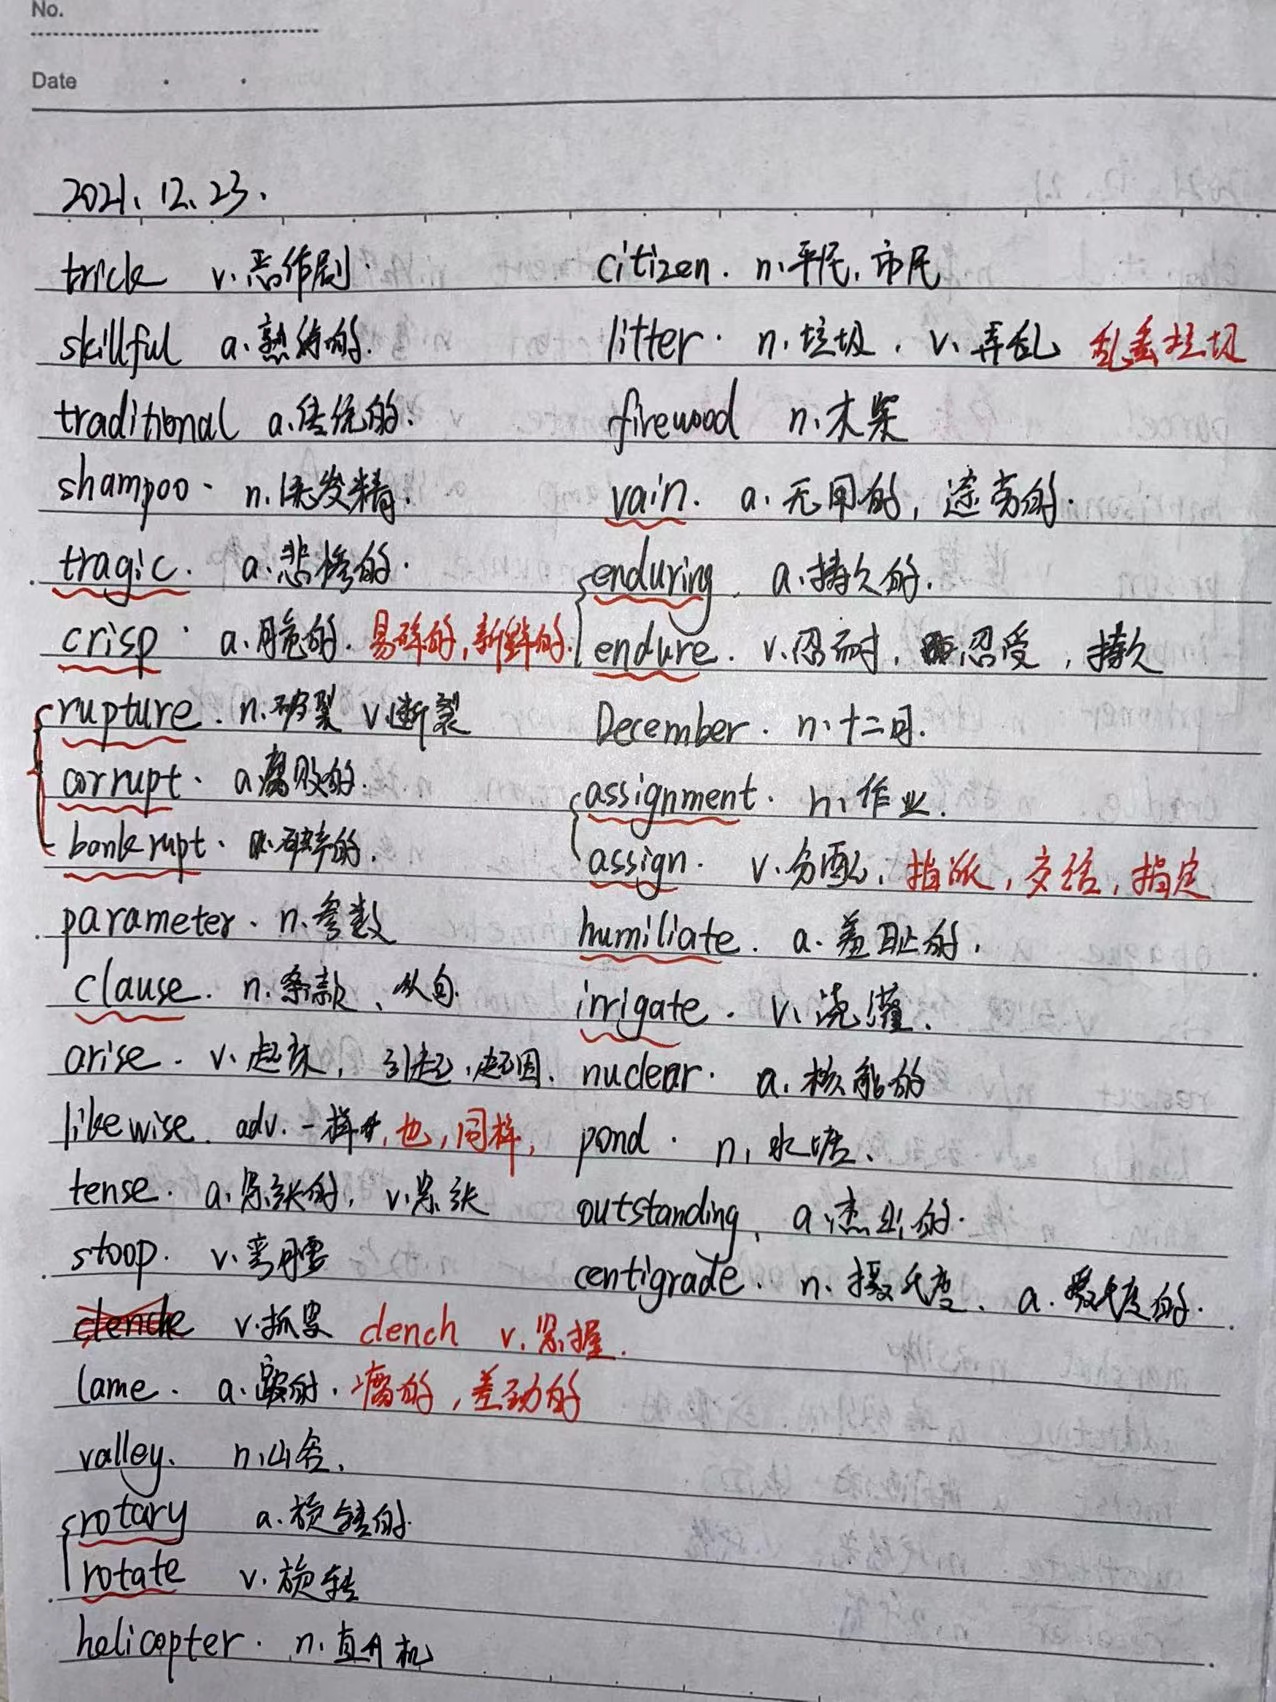 No.
Date
2021.12.23.
trick v.恶作剧.
skillful a.熟练的.
traditional a.传统的.
shampoo. n.洗发精.
tragic. a.悲惨的.
crisp. a.脆的. 易碎的,新鲜的.
rupture. n.破裂 v.断裂
corrupt. a.腐败的.
bankrupt.
parameter. n.参数
clause. n.条款、从句.
arise. v.起床, 引起,起因.
likewise. adv.一样 也,同样,
tense. a.紧张的, v.紧张
stoop. v.弯腰
v.抓紧 clench v.紧握.
lame. a.跛的. 瘸的,差劲的
valley. n.山谷.
rotary a.旋转的.
rotate v.旋转
helicopter. n.直升机
citizen. n.平民,市民
litter. n.垃圾, v.弄乱 乱丢垃圾
firewood n.木柴
vain. a.无用的, 徒劳的.
enduring. a.持久的.
endure. v.忍耐, 忍受, 持久
December. n.十二月.
assignment. n.作业.
assign. v.分配, 指派, 交给, 指定
humiliate. a.羞耻的.
irrigate. v.浇灌.
nuclear. a.核能的
pond. n.水塘.
outstanding. a.杰出的.
centigrade. n.摄氏度、a.摄氏度的.